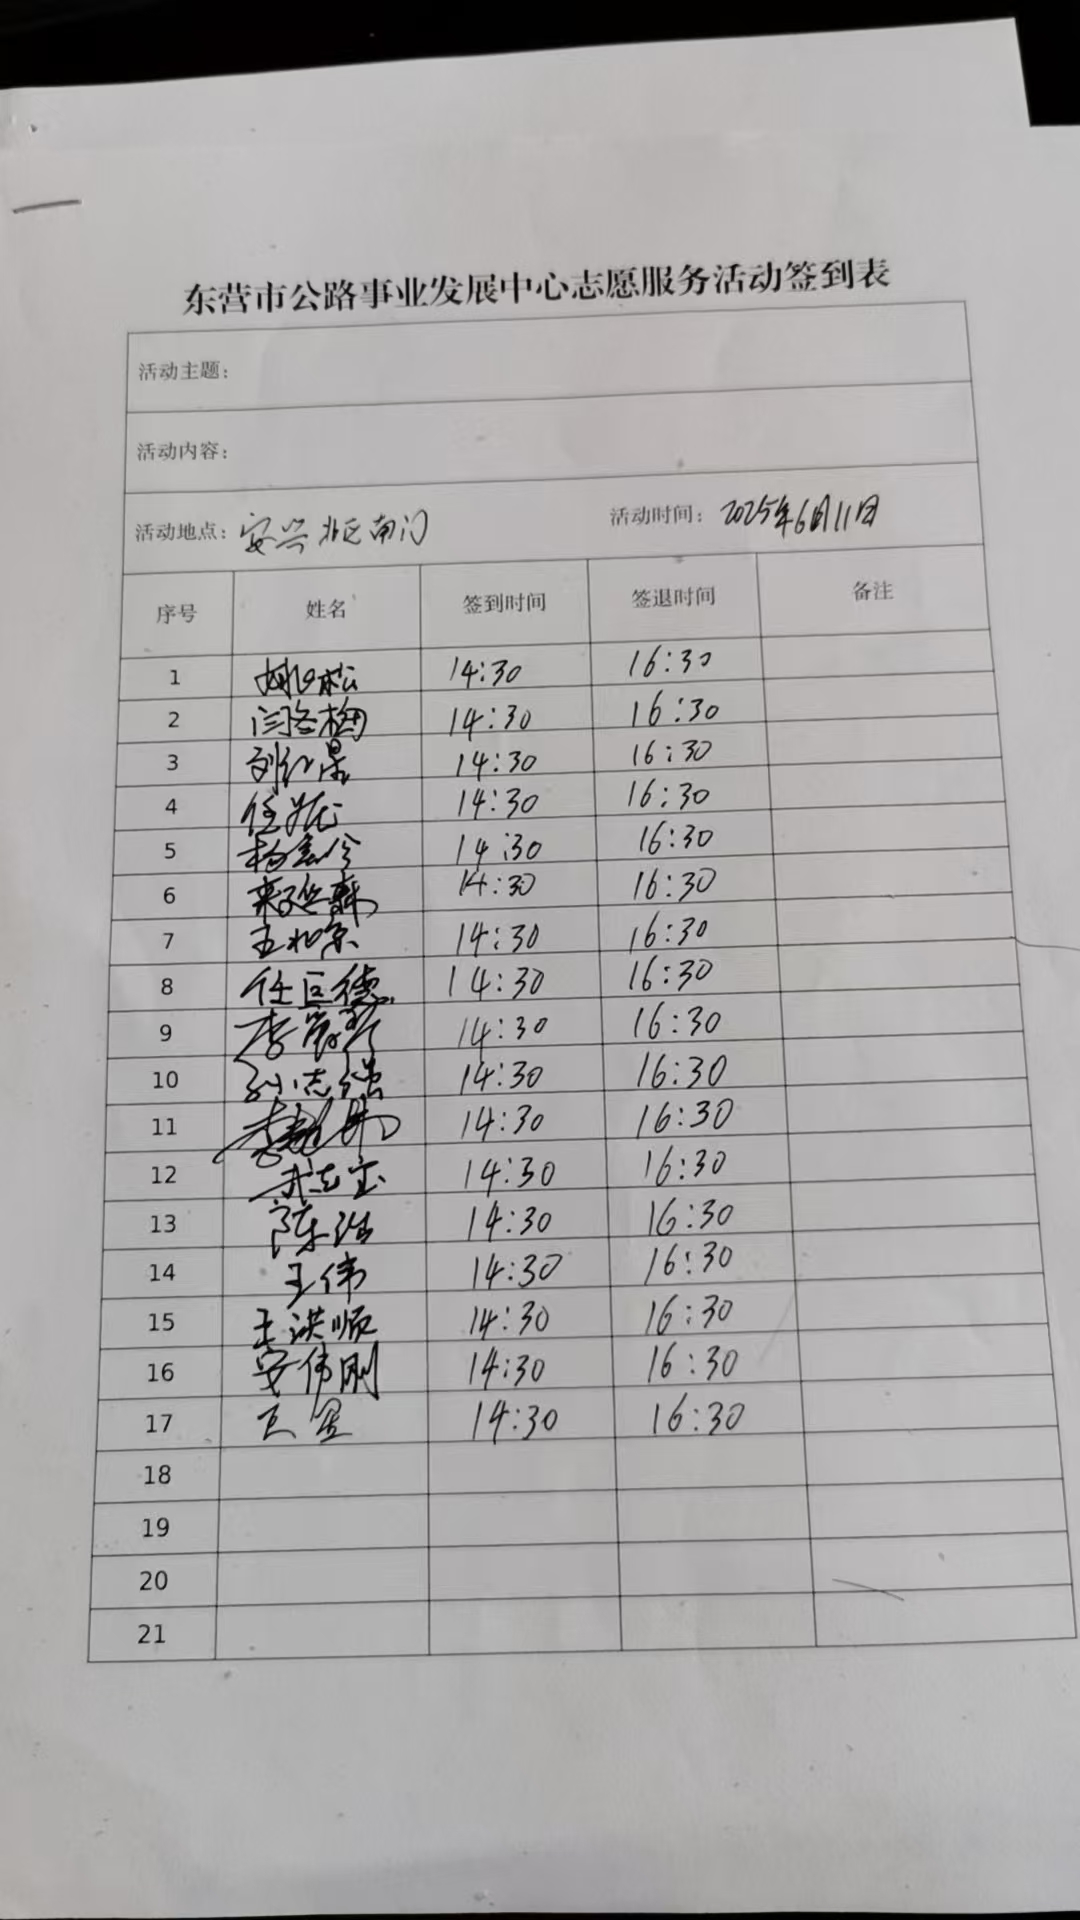 东营市公路事业发展中心志愿服务活动签到表
活动主题：
活动内容：
活动地点：安兴北区南门 活动时间：2025年6月11日
序号 姓名 签到时间 签退时间 备注
1 松 14:30 16:30
2 闫冬梅 14:30 16:30
3 刘红星 14:30 16:30
4 任 14:30 16:30
5 杨 14:30 16:30
6 14:30 16:30
7 王北京 14:30 16:30
8 任巨德 14:30 16:30
9 李 14:30 16:30
10 孙志强 14:30 16:30
11 李 14:30 16:30
12 志宝 14:30 16:30
13 陈 14:30 16:30
14 王伟 14:30 16:30
15 王洪顺 14:30 16:30
16 安伟刚 14:30 16:30
17 14:30 16:30
18
19
20
21